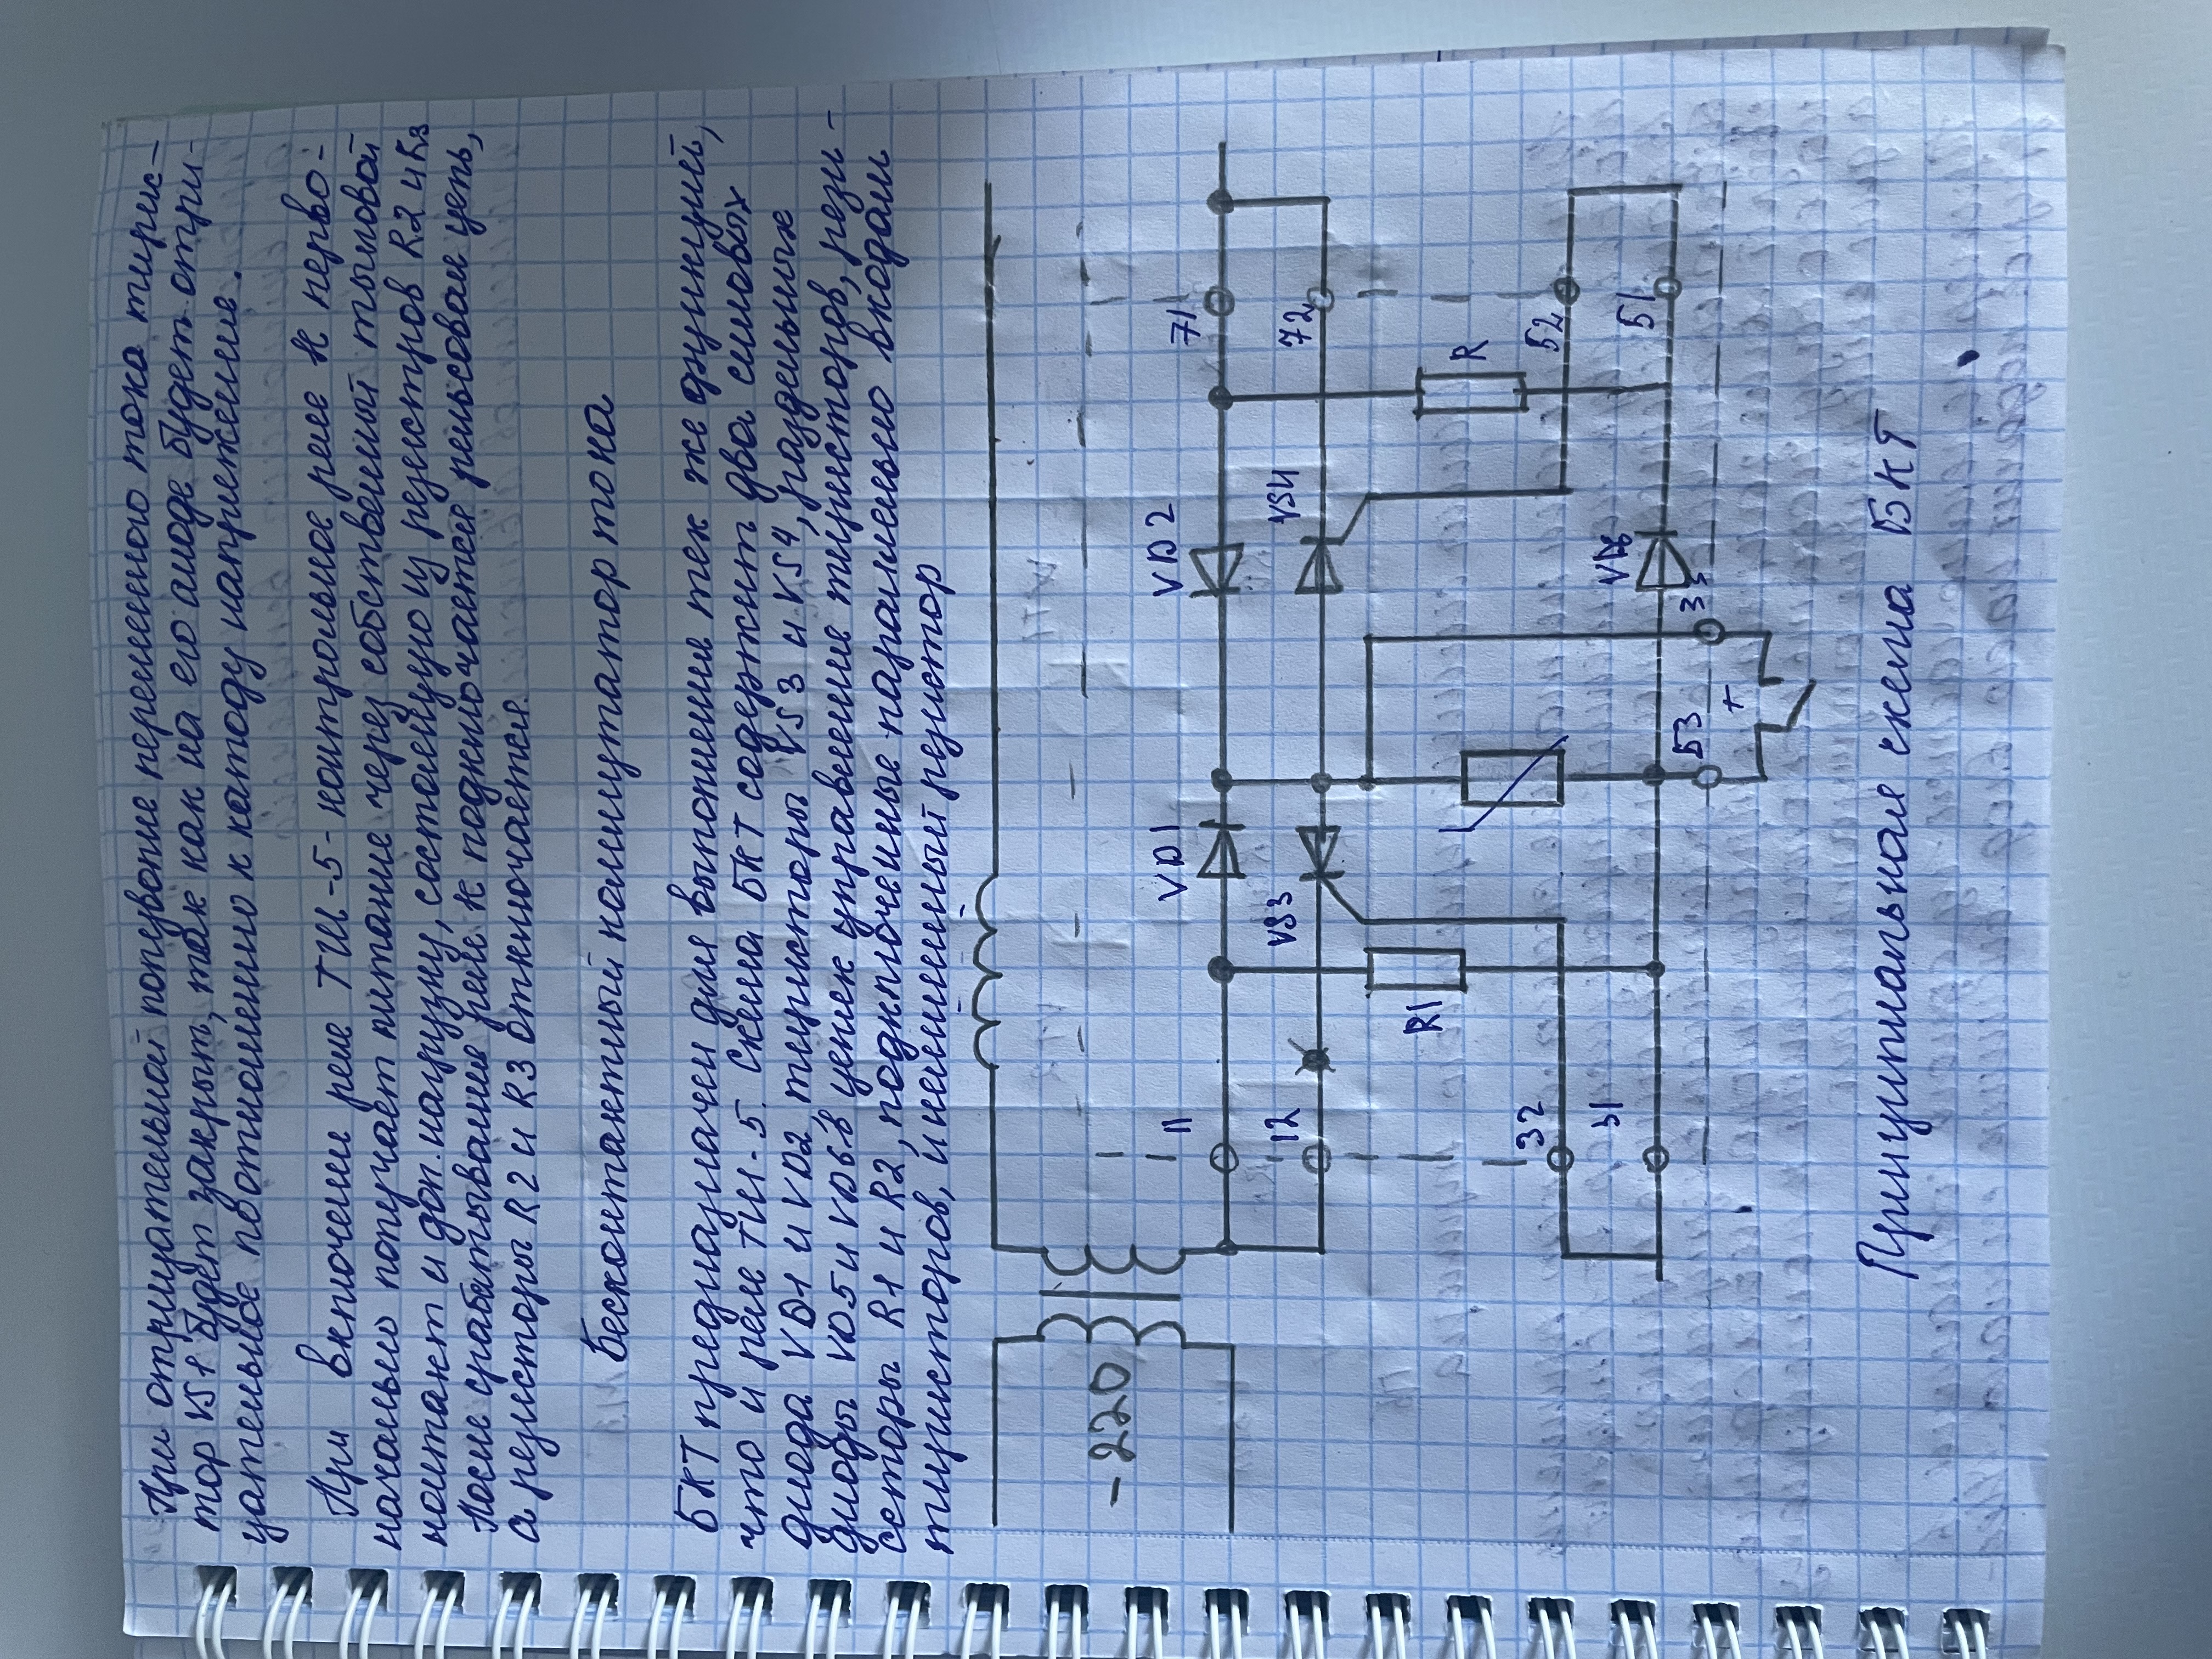 При отрицательной полуволне переменного тока тирис-
тор VS1 будет закрыт, так как на его аноде будет отри-
цательное по отношению к катоду напряжение.
При включении реле ТШ-5-контрольное реле К перво-
начально получает питание через собственный тыловой
контакт и доп. нагрузку, состоящую из резисторов R2 и R3
После срабатывание реле К подключается рельсовая цепь,
а резисторы R2 и R3 отключается.
Бесконтактный коммутатор тока
БКТ предназначен для выполнение тех же функций,
что и реле ТШ-5. Схема БКТ содержит два силовых
диода VD1 и VD2 тиристоры VS3 и VS4, раздельные
диоды VD5 и VD6 в цепях управление тиристоров, рези-
сторы R1 и R2, подключенные параллельно входам
тиристоров, и нелинейный резистор
-220
11
VD1
VD2
71
12
VS3
VS4
72
R1
R
32
52
31
VD6
51
53
3
Т
Принципиальная схема БКТ